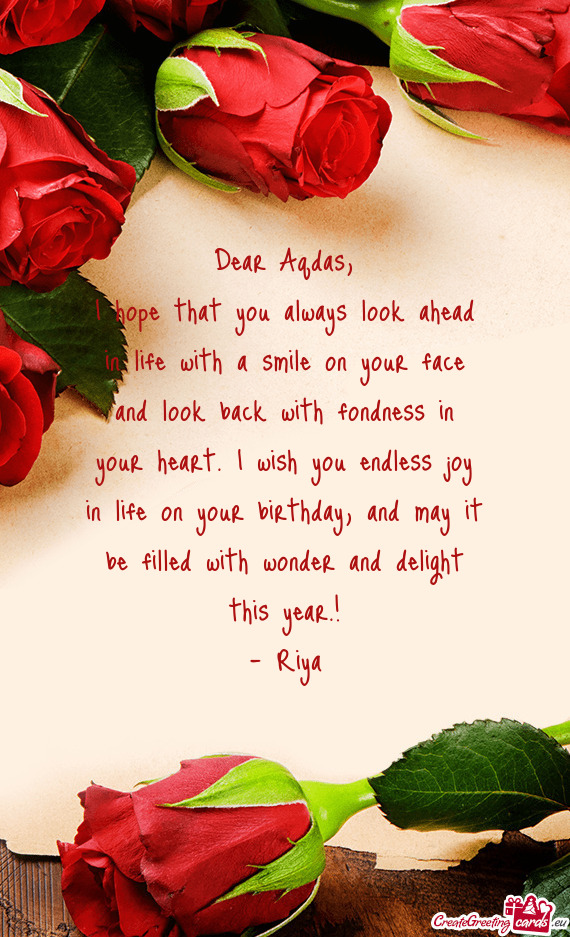 Dear Aqdas,
I hope that you always look ahead
in life with a smile on your face
and look back with fondness in
your heart. I wish you endless joy
in life on your birthday, and may it
be filled with wonder and delight
this year.!
- Riya
CreateGreeting cards.eu